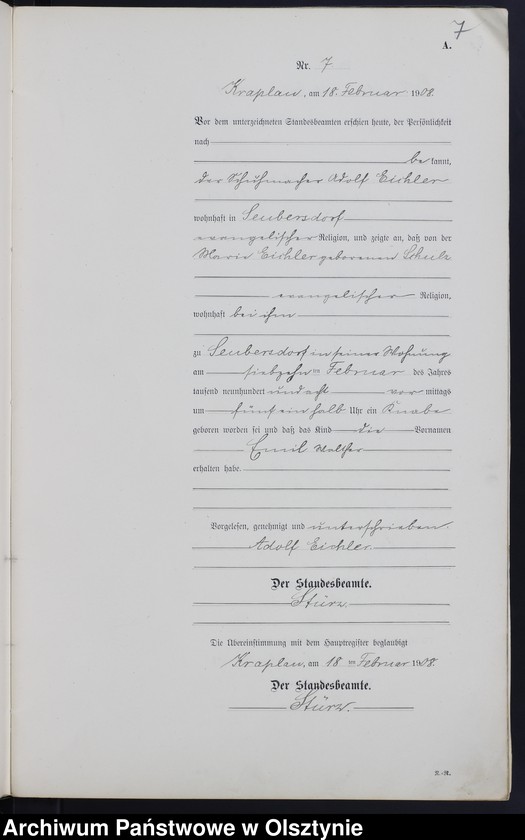 7
A.
Nr. 7
Kraplau, am 18. Februar 1908.
Vor dem unterzeichneten Standesbeamten erschien heute, der Persönlichkeit
nach
be kannt,
der Schuhmacher Adolf Eichler
wohnhaft in Seubersdorf
evangelischer Religion, und zeigte an, daß von der
Marie Eichler geborenen Schulz
evangelischer Religion,
wohnhaft bei ihm
zu Seubersdorf in seiner Wohnung
am siebzehn ten Februar des Jahres
tausend neunhundert und acht vor mittags
um fünf ein halb Uhr ein Knabe
geboren worden sei und daß das Kind die Vornamen
Emil Walther
erhalten habe.
Vorgelesen, genehmigt und unterschrieben.
Adolf Eichler
Der Standesbeamte.
Stürz.
Die Übereinstimmung mit dem Hauptregister beglaubigt
Kraplau, am 18 ten Februar 1908.
Der Standesbeamte.
Stürz.
Archiwum Państwowe w Olsztynie